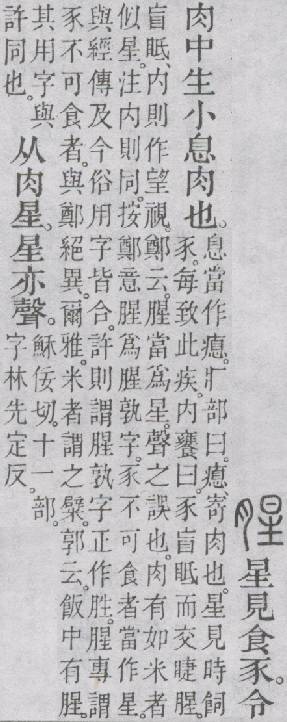 腥星見食豕。令
肉中生小息肉也。
息當作瘜。疒部曰。瘜、寄肉也。星見時飼
豕。每致此疾。內饔曰。豕盲眡而交睫腥。
盲眡、內則作望視。鄭云。腥當爲星。聲之誤也。肉有如米者
似星。注內則同。按鄭意腥爲腥孰字。豕不可食者當作星。
與經傳及今俗用字皆合。許則謂腥孰字正作胜。腥專謂
豕不可食者。與鄭絕異。爾雅。米者謂之糪。郭云。飯中有腥。
其用字與
許同也。
从肉星。星亦聲。
穌佞切。十一部。
字林先定反。